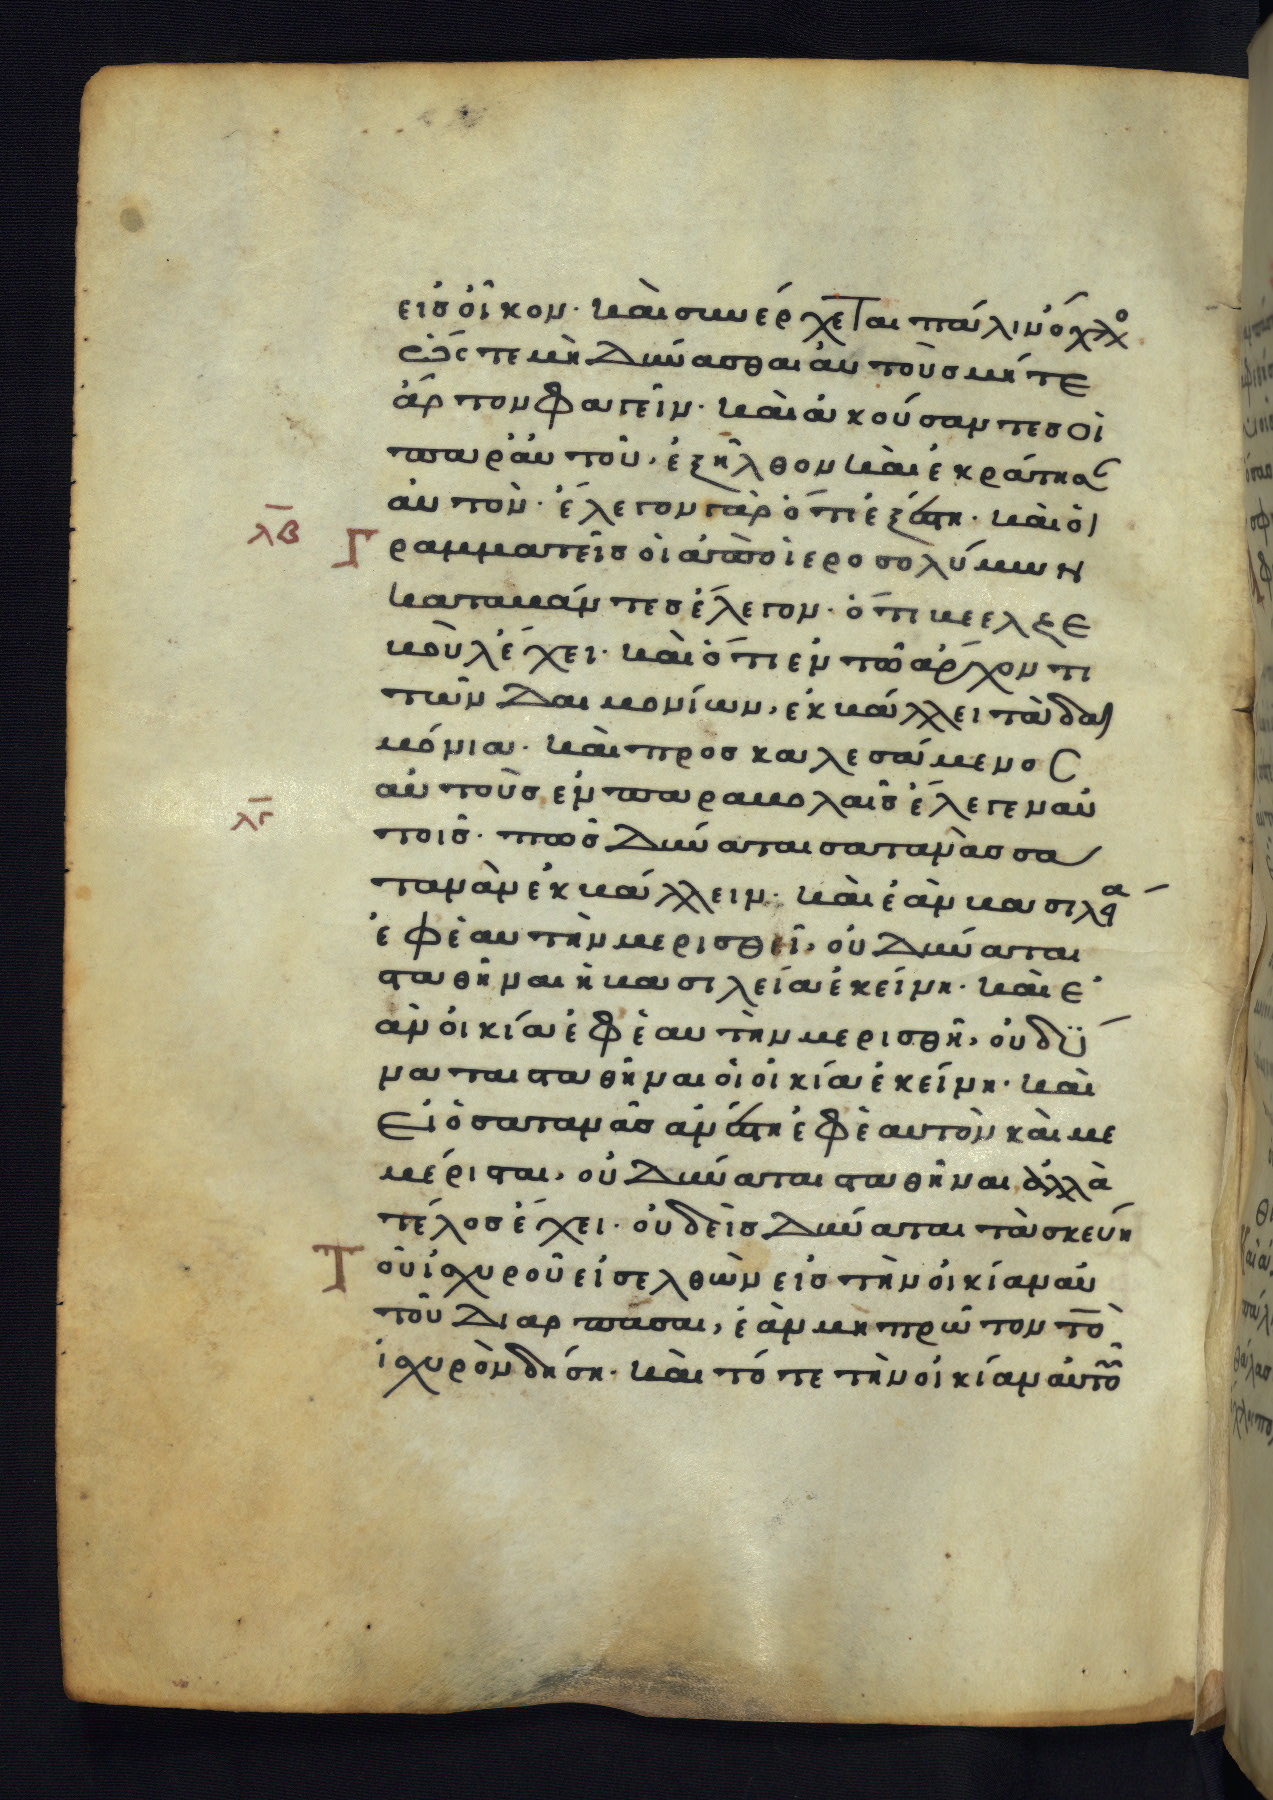 εἰς οἶκον· καὶ συνέρχεται πάλιν ὄχλο
ὥστε μὴ δύνασθαι αὐτοὺς μήτε
ἄρτον φαγεῖν· καὶ ἀκούσαντες οἱ
παρ' αὐτοῦ, ἐξῆλθον καὶ ἐκράτησ
αὐτόν· ἔλεγον γὰρ ὅτι ἐξέστη· καὶ οἱ
λβ Γραμματεῖς οἱ ἀπὸ ἱεροσολύμων
καταβάντες ἔλεγον· ὅτι βεελζε
βοὺλ ἔχει· καὶ ὅτι ἐν τῶ ἄρχοντι
τῶν δαιμονίων, ἐκβάλλει τὰ δαι
μόνια· καὶ προσκαλεσάμενος
αὐτοὺς ἐν παραβολαῖς ἔλεγεν αὐ
λγ τοῖς· πῶς δύναται σατανᾶς σα
τανᾶν ἐκβάλλειν· καὶ ἐὰν βασιλ
ἐφ' ἑαυτὴν μερισθεῖ, οὐ δύναται
σταθῆναι ἡ βασιλεία ἐκείνη· καὶ ἐ
ὰν οἰκία ἐφ' ἑαυτὴν μερισθῆ, οὐ δύ
ναται σταθῆναι οἱ οἰκία ἐκείνη· καὶ
εἰ ὁ σατανᾶς ἀνέστη ἐφ' ἑαυτὸν καὶ με
μέρισται, οὐ δύναται σταθῆναι ἀλλὰ
τέλος ἔχει· οὐδεὶς δύναται τὰ σκεύη
Τοῦ ἰσχυροῦ εἰσελθὼν εἰς τὴν οἰκίαν αὐ
τοῦ διαρπάσαι, ἐὰν μὴ πρῶτον τὸ
ἰσχυρὸν δήση· καὶ τότε τὴν οἰκίαν αὐτο